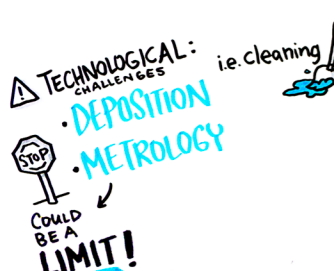 TECHNOLOGICAL:
CHALLENGES
i.e. cleaning
• DEPOSITION
• METROLOGY
STOP
COULD
BE A
LIMIT!